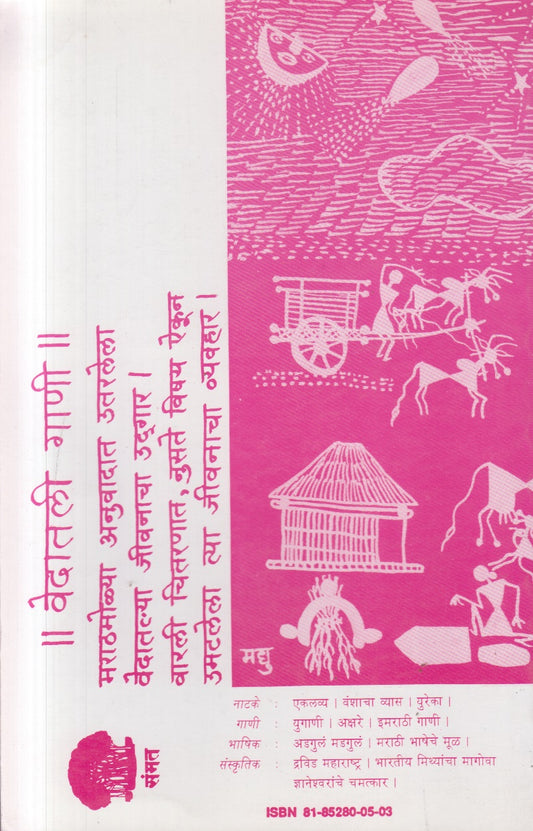 ॥ वेदातली गाणी ॥
मराठमोळ्या अनुवादात उतरलेला
वेदातल्या जीवनाचा उद्‌गार ।
वारली चितरणात, नुसते विषय ऐकून
उमटलेला त्या जीवनाचा व्यवहार ।
मधु
संमत
नाटके : एकलव्य । वंशाचा व्यास । युरेका ।
गाणी : युगाणी । अक्षरे । इमराठी गाणी ।
भाषिक : अडगुलं मडगुलं । मराठी भाषेचे मूळ ।
संस्कृतिक : द्रविड महाराष्ट्र । भारतीय मिथ्यांचा मागोवा
ज्ञानेश्वरांचे चमत्कार ।
ISBN 81-85280-05-03